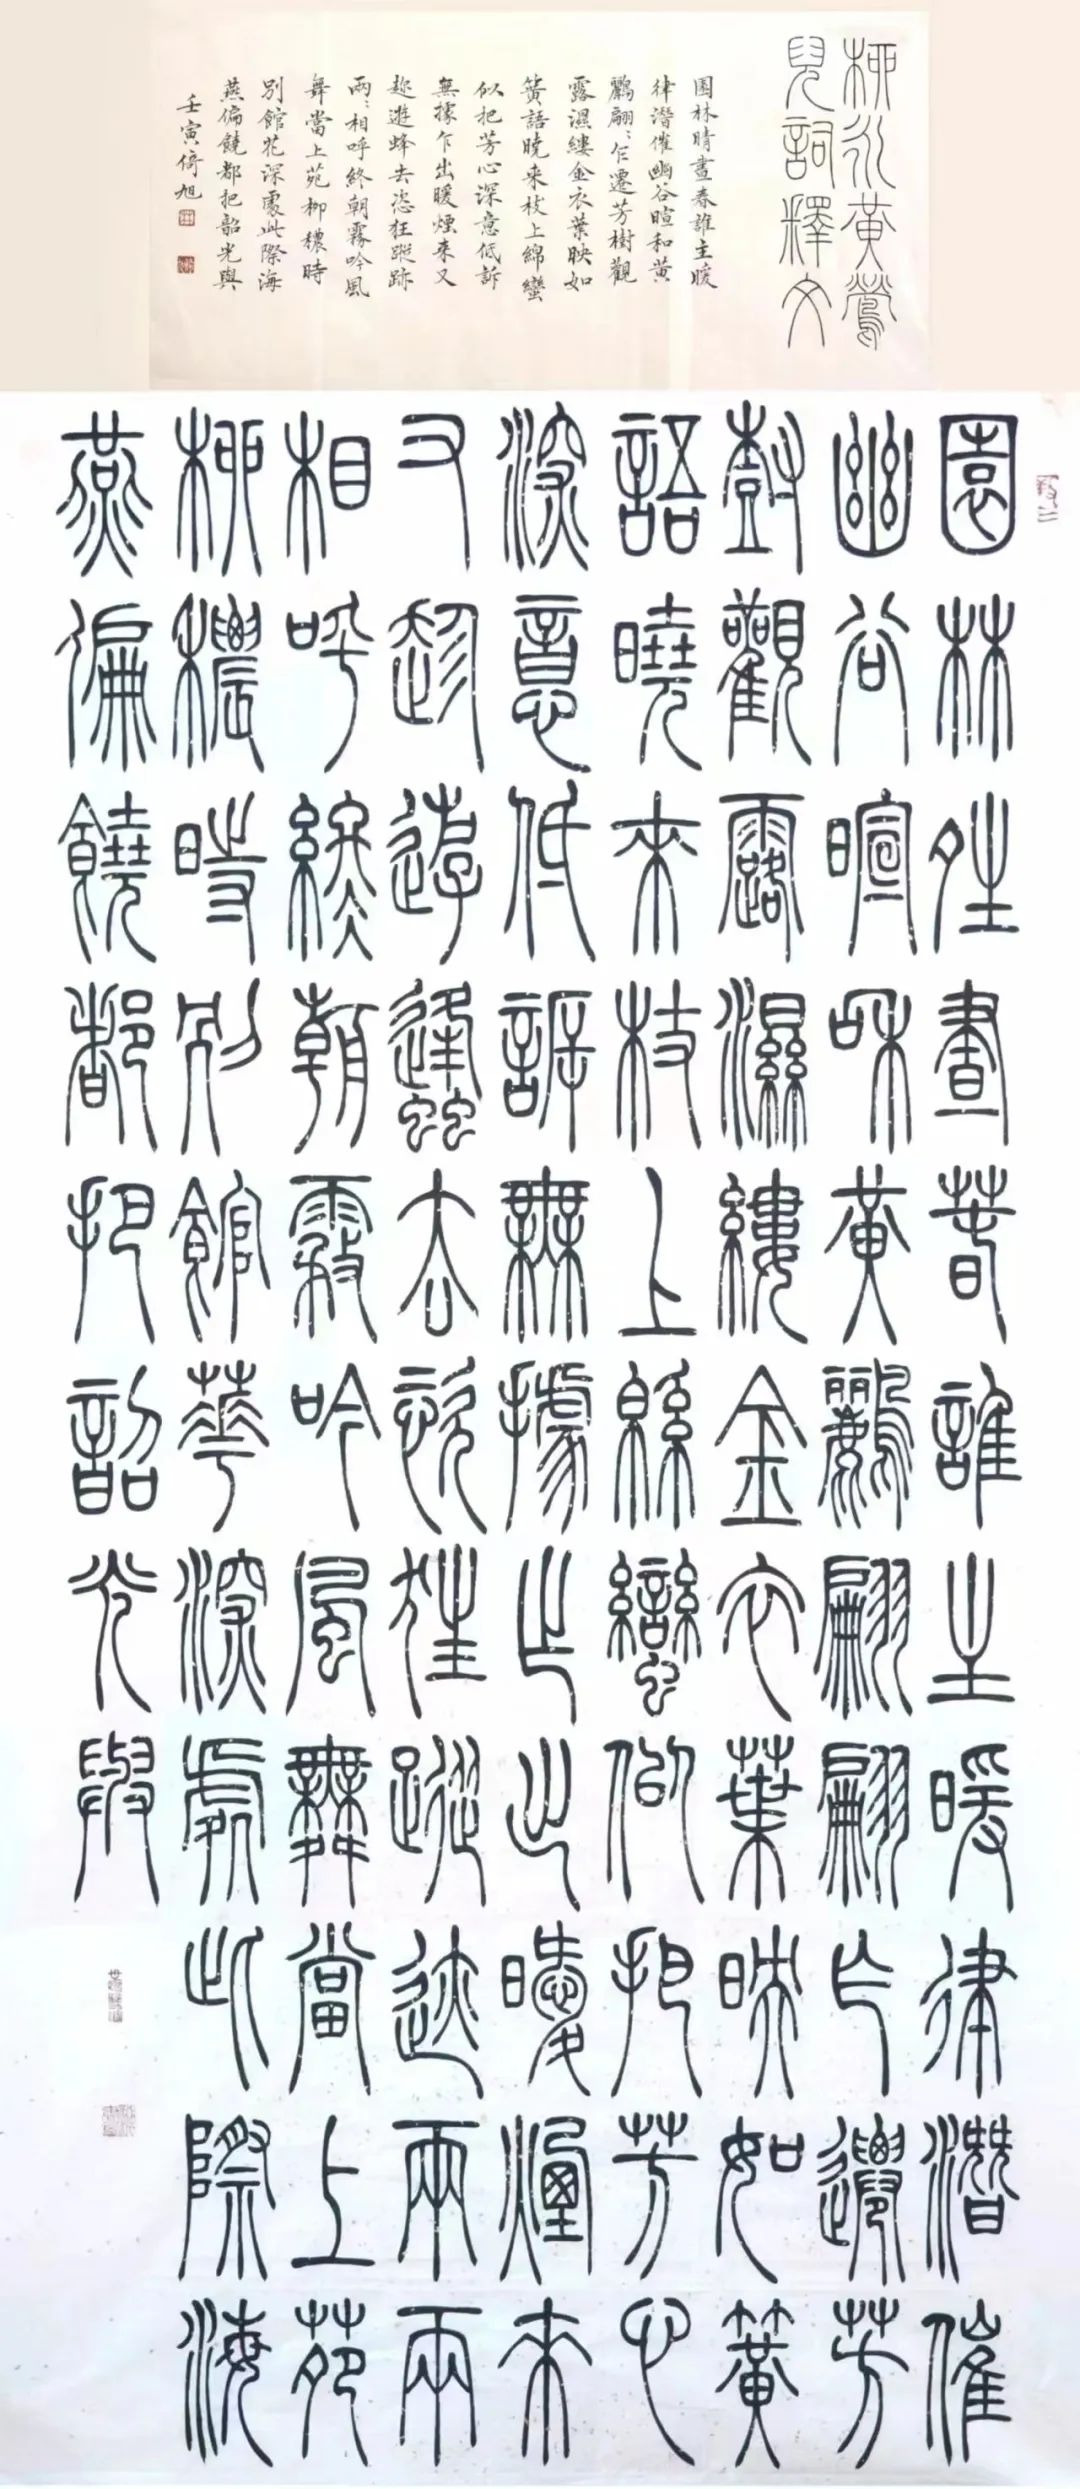 柳永黃鶯
兒詞釋文
園林晴晝春誰主暖
律潛催幽谷暄和黃
鸝翩〻乍遷芳樹觀
露濕縷金衣葉映如
簧語曉來枝上綿蠻
似把芳心深意低訴
無據乍出暖煙來又
趂遊蜂去恣狂蹤跡
兩〻相呼終朝霧吟風
舞當上苑柳穠時
別館花深處此際海
燕偏饒都把韶光與
壬寅倚旭
園林晴晝春誰主暖律潛催
幽谷暄和黃鸝翩翩乍遷芳
樹觀露濕縷金衣葉映如簧
語曉來枝上緜蠻似把芳心
深意低訴無據乍出暖煙來
又趁遊蜂去恣狂蹤跡兩兩
相呼終朝霧吟風舞當上苑
柳穠時別館華深處此際海
燕偏饒都把韶光與